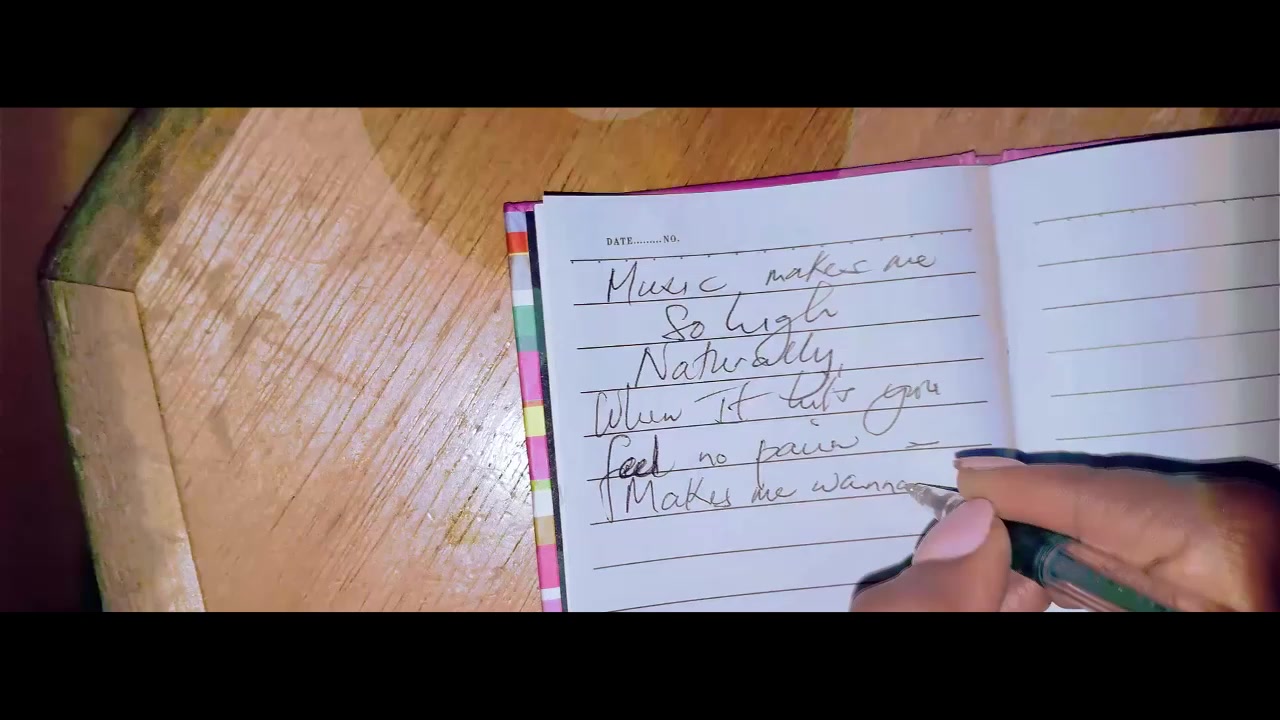 DATE.........NO.
Music makes me
So high
Naturally,
When It hits you
feel no pain =
Makes me wanna